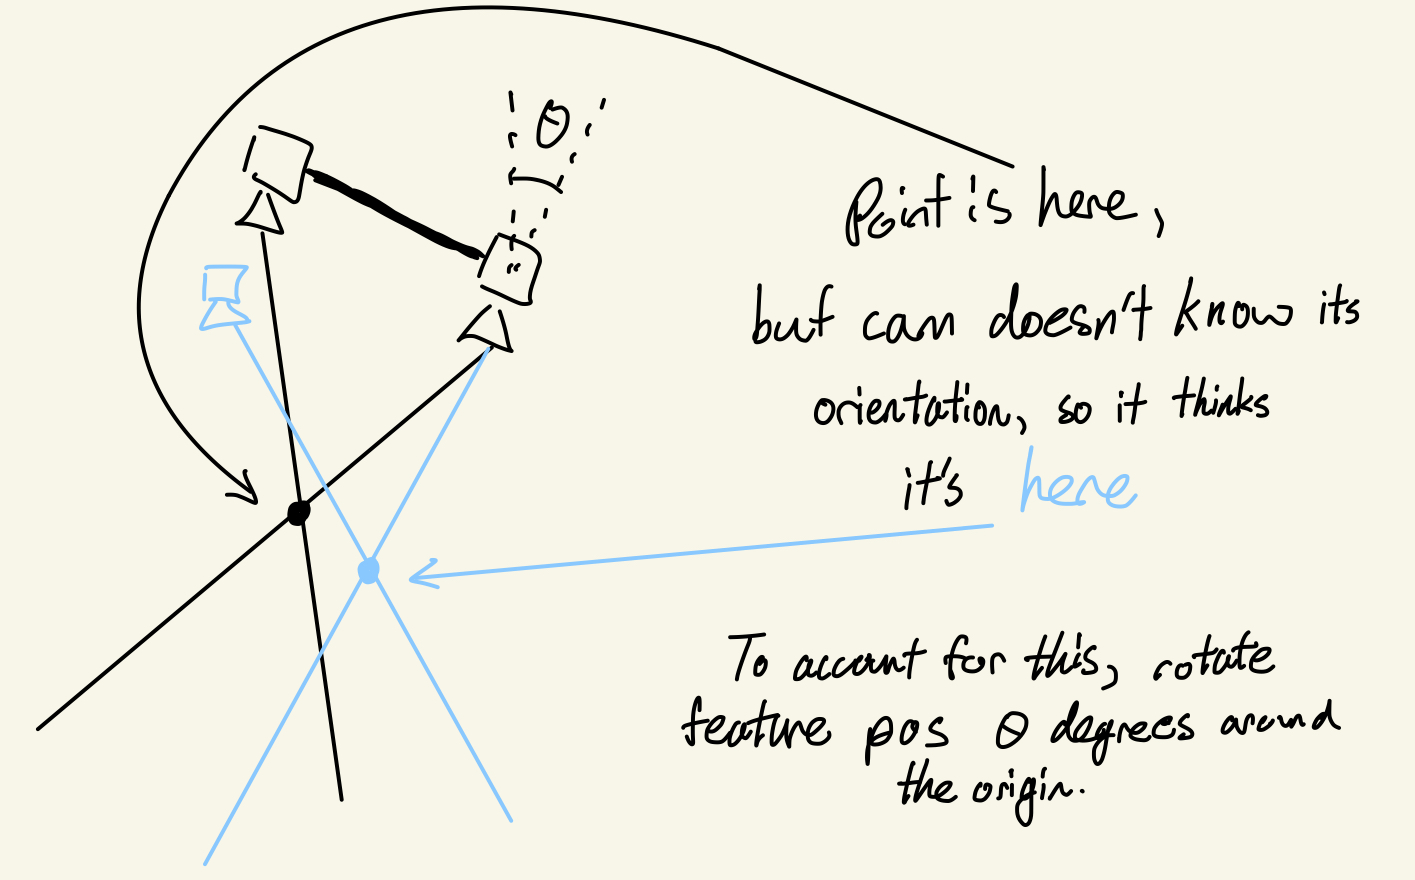 θ
Point is here,
but cam doesn't know its
orientation, so it thinks
it's here
To account for this, rotate
feature pos θ degrees around
the origin.